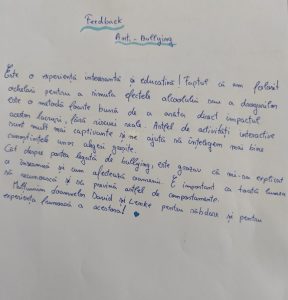 Feedback
Anti-Bullying
Este o experiență interesantă și educativă! Faptul că am folosit
ochelari pentru a simula efectele alcoolului sau a drogurilor
este o metodă foarte bună de a arăta direct impactul
acestor lucruri, fără riscuri reale. Astfel de activități interactive
sunt mult mai captivante și ne ajută să înțelegem mai bine
consecințele unor alegeri greșite.
Cât despre partea legată de bullying, este grozav că mi-au explicat
ce înseamnă și cum afectează oamenii. E important ca toată lumea
să recunoască și să prevină astfel de comportamente.
Mulțumim doamnelor David și pentru răbdare și pentru
experiența frumoasă a acestora!